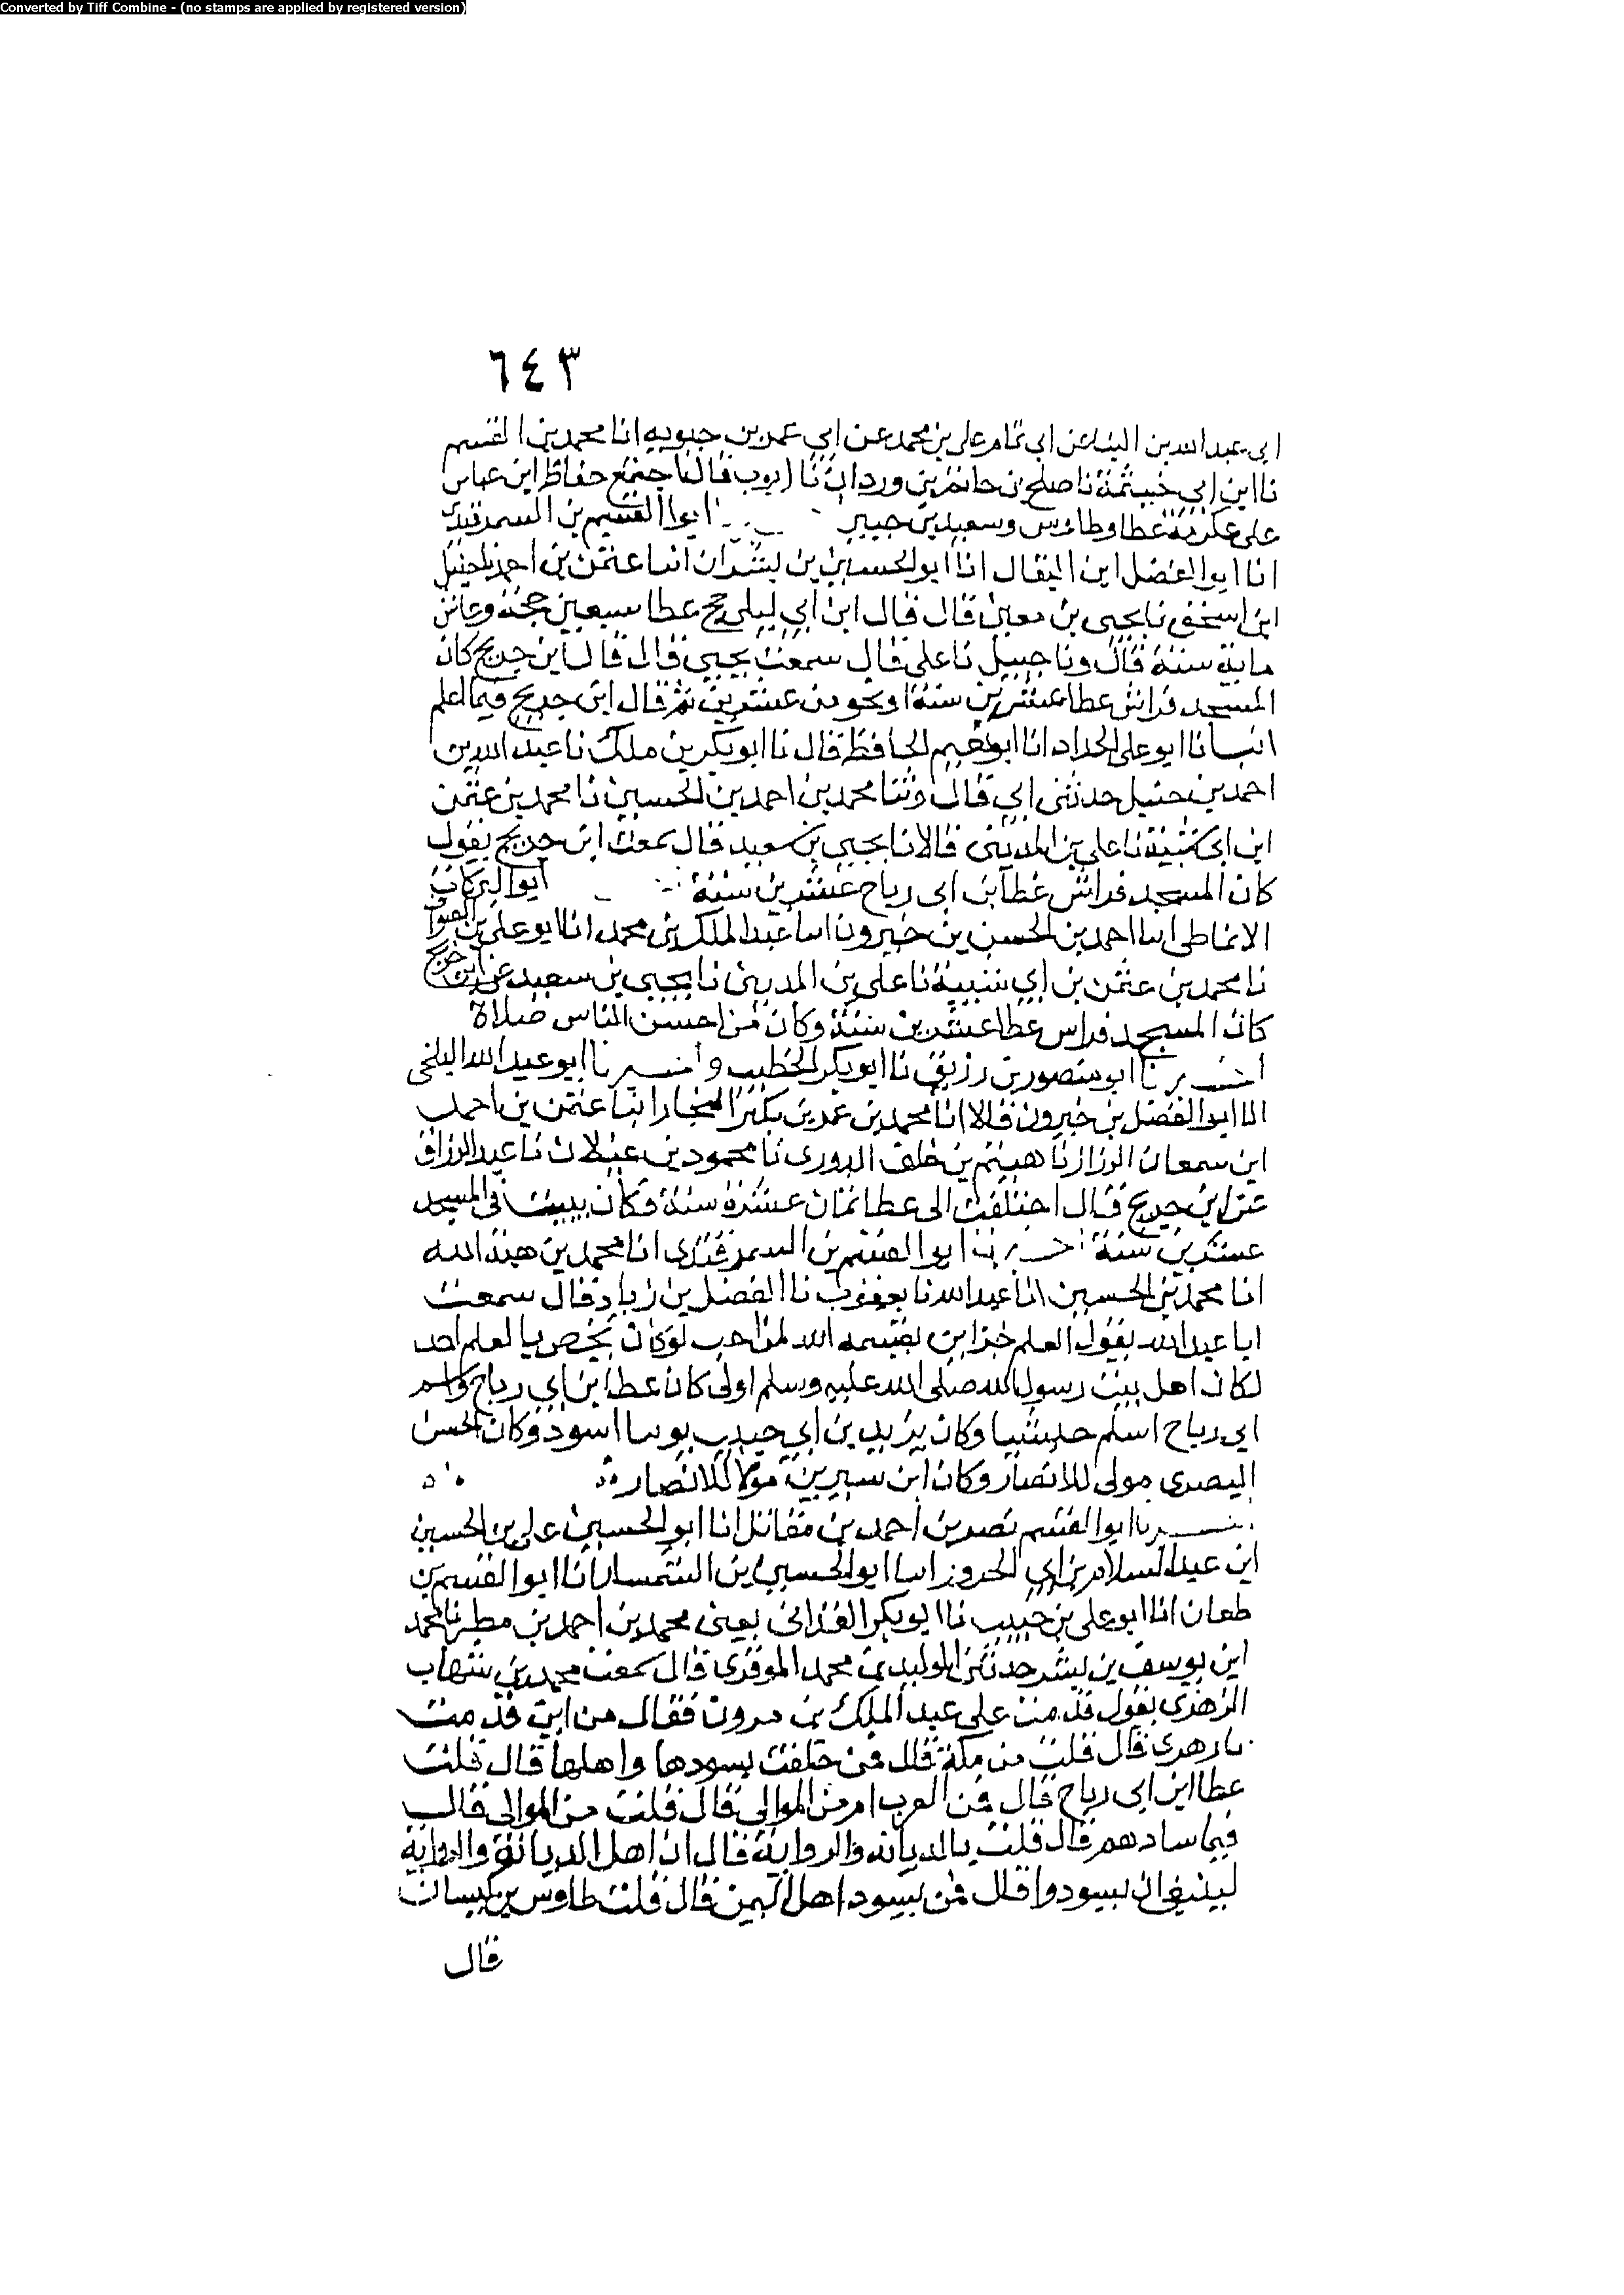 Converted by Tiff Combine - (no stamps are applied by registered version)
٦٤٣
ابي عبد الله بن البنا عن ابي تمام علي بن محمد عن ابي عمر بن حيويه انا محمد بن القسم
نا ابن ابي خيثمة نا صلح بن حاتم بن وردان نا ايوب قال اجتمع حفاظ ابن عباس
على عكرمة عطا وطاوس وسعيد بن جبير ابوا القسم بن السمرقندي
انا ابوا الفضل ابن البقال انا ابو الحسين بن بشران انبا عثمن بن احمد نا حنبل
ابن اسحق نا يحيى بن معين قال قال ابن ابي ليلى حج عطا سبعين حجة وعاش
ماية سنة قال ونا حنبل نا علي قال سمعت يحيى قال قال ابن جريج كان
المسجد فراش عطا عشرين سنة او نحو من عشرين ثم قال ابن جريج فيما اعلم
انبانا ابو على الحداد انا ابو نعيم الحافظ قال نا ابو بكر بن ملك نا عبد الله بن
احمد بن حنبل حدثني ابي قال وثنا محمد بن احمد بن الحسين نا محمد بن عثمن
ابن ابي شيبة نا علي بن المديني قالا نا يحيى بن سعيد قال سمعت ابن جريج يقول
كان المسجد فراش عطا بن ابي رباح عشرين سنة ابوا البركات
الانماطي انبا احمد بن الحسن بن خيرون انبا عبد الملك بن محمد انا ابو علي بن الصواف
نا محمد بن عثمن بن ابي شيبة نا علي بن المديني نا يحيى بن سعيد عن ابن جريج
كان المسجد فراس عطا عشرين سنة وكان من احسن الناس صلاة
اخبرنا ابو منصور بن رزيق نا ابو بكر الخطيب واخبرنا ابو عبد الله البلخي
انا ابوا الفضل بن خيرون قالا انا محمد بن عمر بن بكير النجار انبا عثمن بن احمد
ابن سمعان الرزاز نا هيثم بن خلف الدوري نا محمود بن غيلان نا عبد الرزاق
عن ابن جريج قال اختلفت الى عطا ثمان عشرة سنة وكان يبيت في المسجد
عشرين سنة اخبرنا ابوا القسم بن السمرقندي انا محمد بن هبة الله
انا محمد بن الحسين انا عبد الله نا يعقوب نا الفضل بن زياد قال سمعت
ابا عبد الله يقول العلم خزاين يقسمه الله لمن احب لو كان يخص بالعلم احد
لكان اهل بيت رسول الله صلى الله عليه وسلم اولى كان عطا بن ابي رباح واسم
ابي رباح اسلم حبشيا وكان يزيد بن ابي حبيب نوبيا اسود وكان الحسن
البصري مولى للانصار وكان ابن سيرين مولا للانصار
اخبرنا ابوا القسم نصر بن احمد بن مقاتل انا ابو الحسين علي بن الحسين
ابن عبد السلام بن ابي الحزور انبا ابوا الحسين بن السمسار انا ابوا القسم بن
طعان انا ابو علي بن حبيب نا ابو بكر الفزاني يعني محمد بن احمد بن مطر نا محمد
ابن يوسف بن بشر حدثني الوليد بن محمد الموقري قال سمعت محمد بن شهاب
الزهري يقول قدمت على عبد الملك بن مرون فقال من اين قدمت
يا زهري قال قلت من مكة قال فمن خلفت يسودها واهلها قال قلت
عطا ابن ابي رباح قال فمن العرب ام من الموالي قال قلت من الموالي قال
فبما سادهم قال قلت بالديانه والرواية قال ان اهل الديانة والرواية
لينبغي ان يسودوا قال فمن يسود اهل اليمن قال قلت طاوس بن كيسان
قال